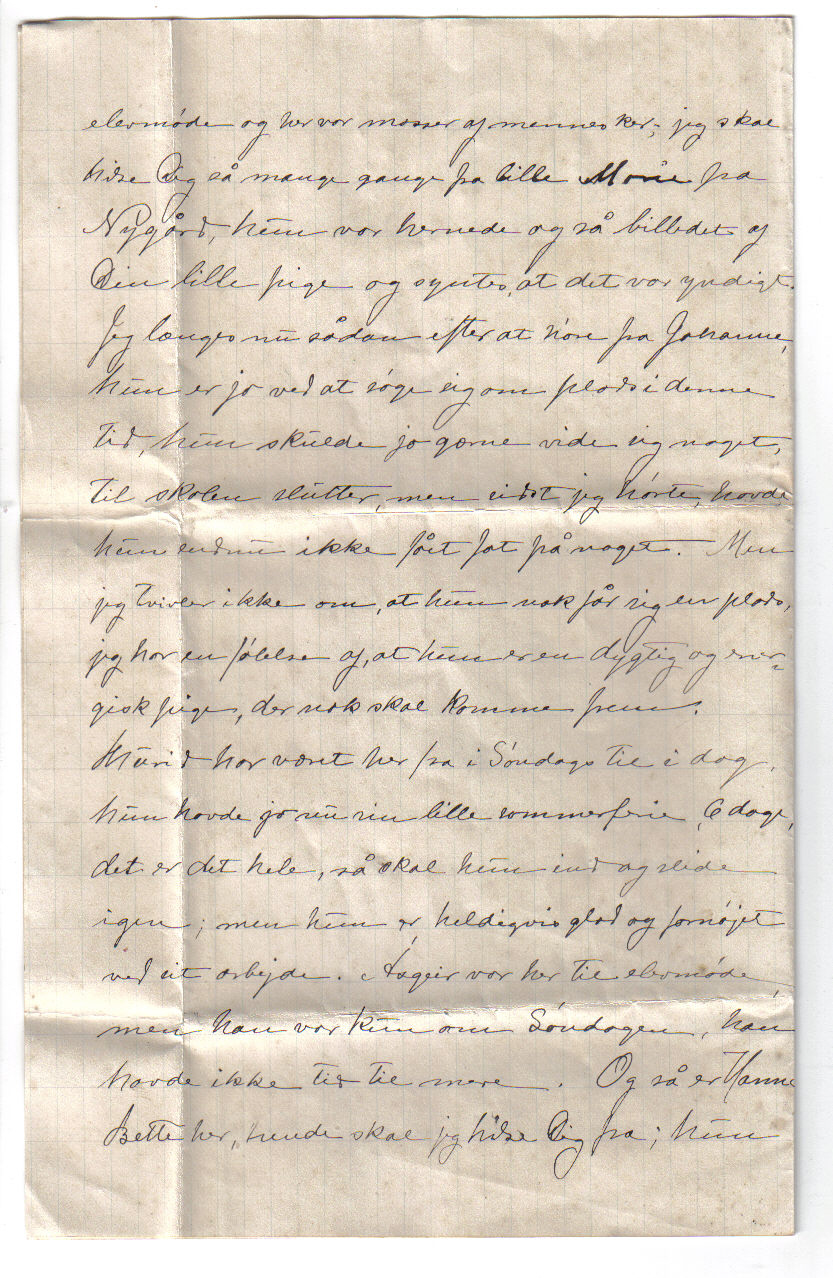 elevmøde og her var masser af mennesker; jeg skal
hilse Dig så mange gange fra lille Marie fra
Nygård, hun var hernede og så billedet af
Din lille pige og syntes, at det var yndigt.
Jeg længes nu sådan efter at høre fra Johanne,
hun er jo ved at søge sig om plads i denne
tid, hun skulde jo gærne vide sig noget,
til skolen slutter, men sidst jeg hørte, havde
hun endnu ikke fået fat på noget. Men
jeg tvivler ikke om, at hun nok får sig en plads,
jeg har en følelse af, at hun er en dygtig og ener-
gisk pige, der nok skal komme frem.
Thurid har været her fra i Søndags til i dag,
hun havde jo nu sin lille sommerferie, 6 dage,
det er det hele, så skal hun ind og slide
igen; men hun er heldigvis glad og fornøjet
ved sit arbejde. Asgeir var her til elevmøde,
men han var kun om Søndagen, han
havde ikke tid til mere. Og så er Hanne
Bette her, hende skal jeg hilse Dig fra; hun